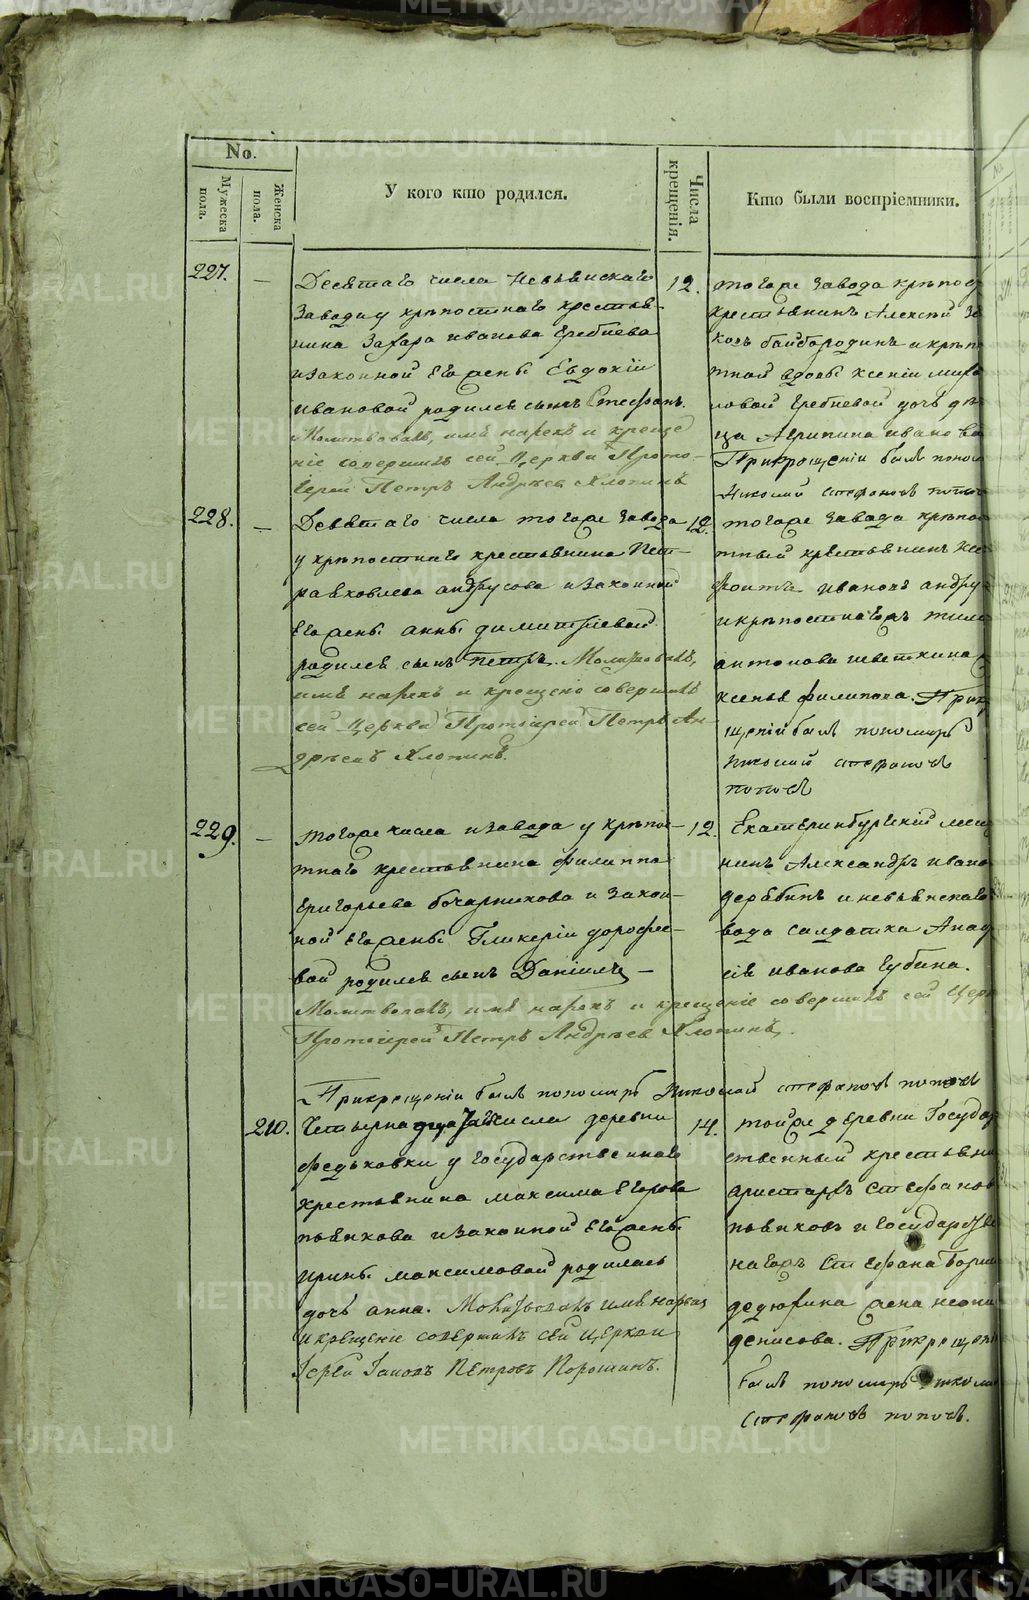 No.
Мужеска пола.
Женска пола.
У кого кто родился.
Числа крещенія.
Кто были воспріемники.
227. —
Девятаго числа Невьянскаго
завода у крѣпостнаго крестья-
нина Захара иванова Гребнева
и законной Его жены Евдокіи
ивановой родился сынъ Стефанъ.
Молитвовалъ, имя нарекъ и креще
ніе совершилъ сей Церкви Прото-
іерей Петръ Андреевъ Хлопинъ
12.
тогоже завода крѣпос
крестьянинъ Алексѣй
ковъ байбородинъ и крѣпо
тной вдовы Ксеніи
ловой Гребневой дочь дѣ
ца Агрипина ивано
При крещеніи былъ поном
Николай стефановъ попов
228. —
Девятаго числа тогоже завода
у крѣпостнаго крестьянина Пет-
ра яковлева андрусова и законной
Его жены анны димитріевой
родился сынъ Петръ. Молитвовалъ,
имя нарекъ и крещеніе совершилъ
сей Церкви Протоіерей Петръ Ан-
дреевъ Хлопинъ.
12.
тогоже завода крѣпос
тный крестьянинъ
иванов андру
и крѣпостнаго ж
антонова цветкина
ксенья филипова. При к
щеніи былъ пономарь
Николай стефановъ
попов
229. —
тогоже числа и завода у крѣпос-
тнаго крестьянина филиппа
Григорьева бочарникова и закон-
ной Его жены Гликеріи дорофее-
вой родился сынъ Даніилъ —
Молитвовалъ, имя нарекъ и крещеніе совершилъ сей Церк
Протоіерей Петръ Андреевъ Хлопинъ.
При крещеніи былъ пономарь Николай стефановъ попов
12.
Екатеринбургский мещ
нинъ Александръ ивано
дерябинъ и невьянскаго
вода солдатка Анас
сія иванова Губина.
210.
числа деревни
федьковки у государственнаго
крестьянина максима Егорова
новикова и законной Его жены
ирины максимовой родилась
дочь анна. Молитвовалъ имя нарекъ
и крещеніе совершилъ сей церкви
Іерей Іаковъ Петровъ Порошинъ.
14.
тойже деревни Государ
ственный крестьяни
аристархъ Стефанов
новиковъ и государстве
наго Стефана
дедюхина жена
денисова. При креще
былъ пономарь Никола
стефановъ поповъ.
METRIKI.GASO-URAL.RU